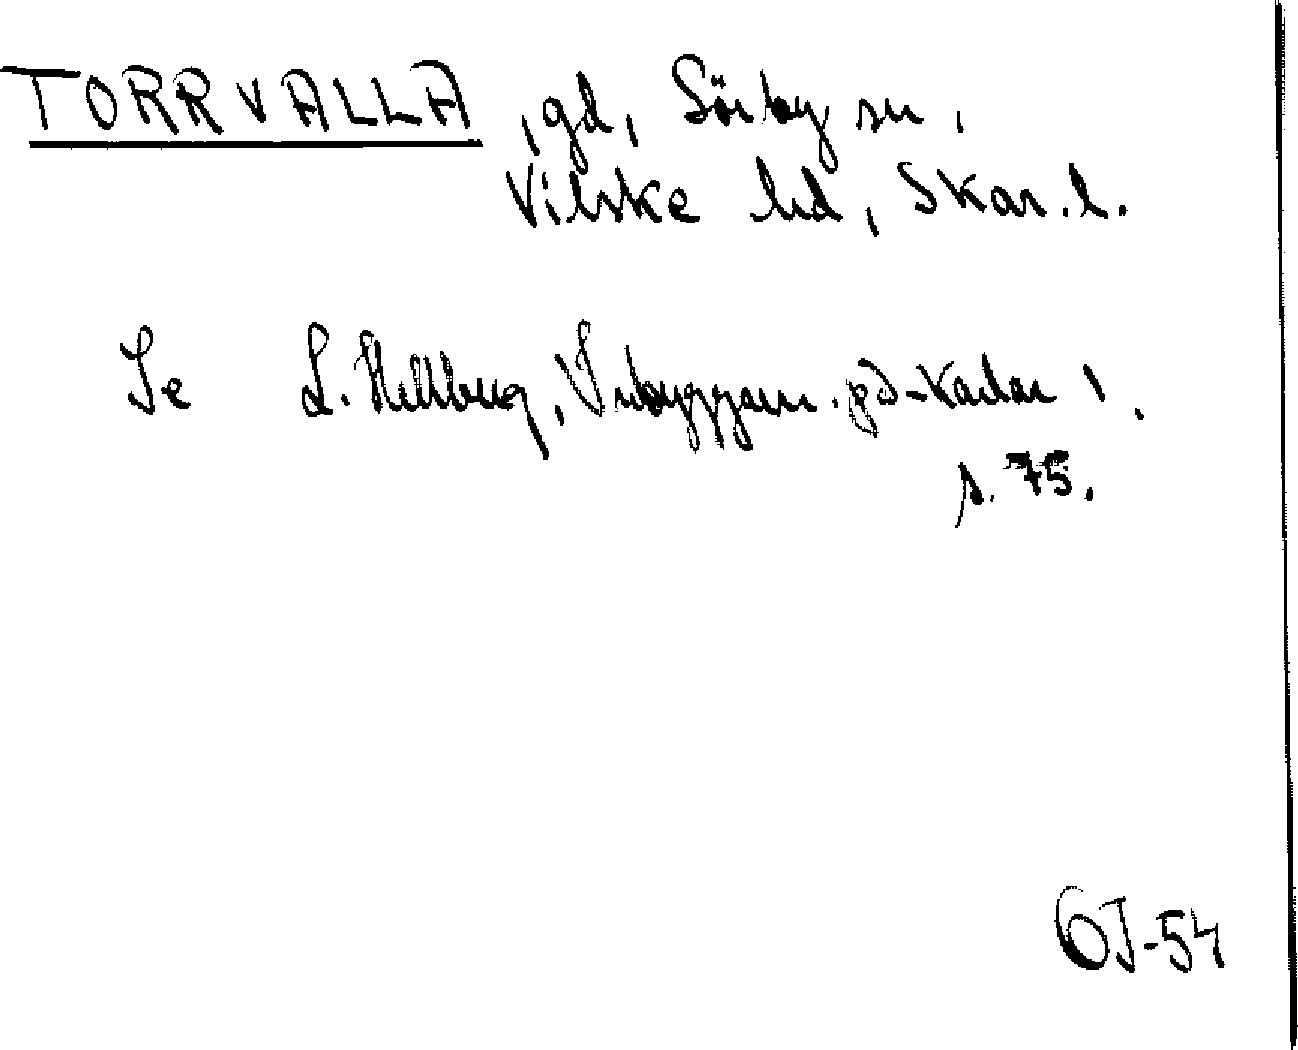 TORRVALLA, gd, Sörby sn,
Vilske hd, Skar. l.
Se L. Hellberg, Inbyggarn. på -karlar 1,
s. 75.
GJ-54